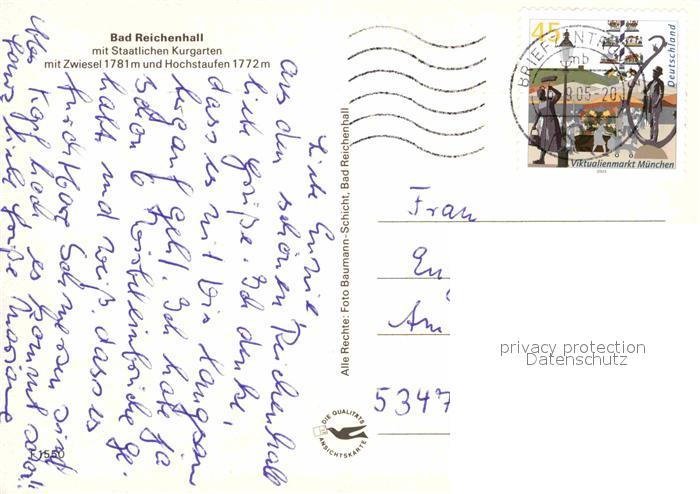 Bad Reichenhall
mit Staatlichen Kurgarten
mit Zwiesel 1781m und Hochstaufen 1772m
Liebe
aus dem schönen Reichenhall
liebe Grüße. Ich denke,
dass es mit Dir langsam
bergauf geht. Ich hatte ja
schon 6 Wirbeleinbrüche ge-
habt und weiß, dass es
furchtbare Schmerzen sind
Also Kopf hoch es kommt
liebe Grüße Mariane
F 1550
Alle Rechte: Foto Baumann-Schicht, Bad Reichenhall
DIE QUALITÄTS
ANSICHTSKARTE
45
Deutschland
Viktualienmarkt München
2003
BRIEFZENTRUM
Frau
Am
5347
privacy protection
Datenschutz